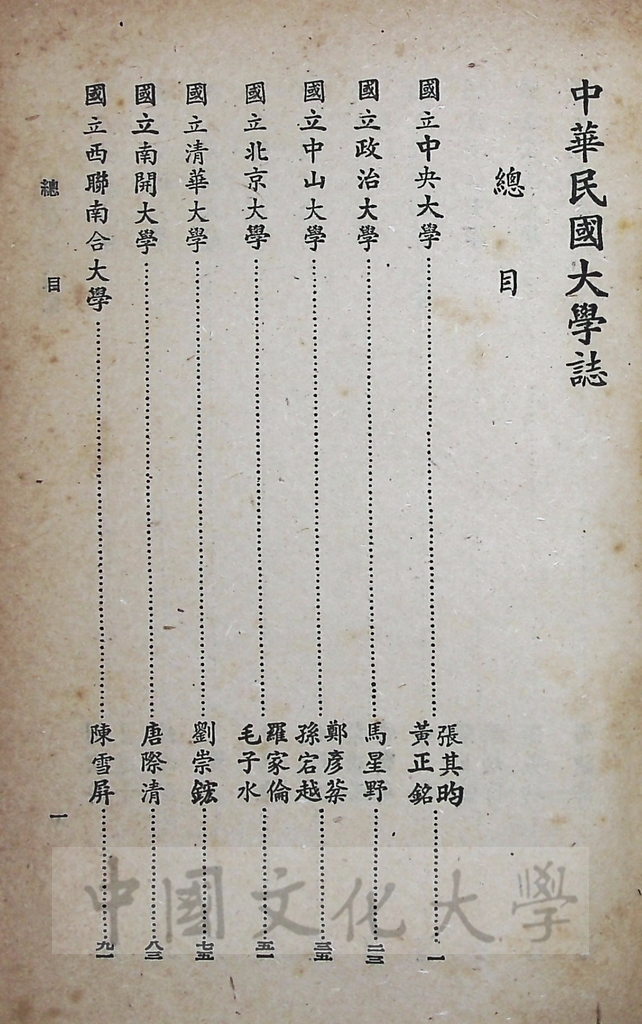 中華民國大學誌
總目
國立中央大學……張其昀 黃正銘……一
國立政治大學……馬星野……二三
國立中山大學……鄭彥棻 孫宕越……三五
國立北京大學……羅家倫 毛子水……五一
國立清華大學……劉崇鋐……七五
國立南開大學……唐際清……八三
國立西聯南合大學……陳雪屏……九一
總目
一
中國文化大學